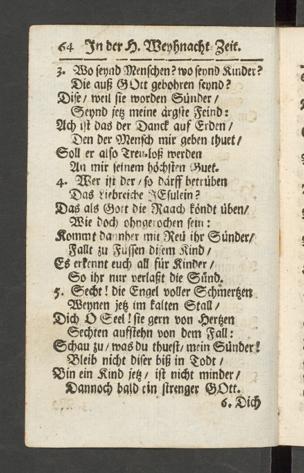 64 In der H. Weyhnacht-Zeit.
3. Wo seynd Menschen? wo seynd Kinder?
Die auß GOtt gebohren seynd?
Dise / weil sie worden Sünder /
Seynd jetz meine ärgste Feind:
Ach ist das der Danck auf Erden /
Den der Mensch mir geben thuet /
Soll er also Treu-loß werden
An mir seinem höchsten Guet.
4. Wer ist der / so därff betrüben
Das Liebreiche JEsulein?
Das als Gott die Raach köndt üben /
Wie doch ohngerochen seyn:
Kommt daher mit Reü ihr Sünder /
Fallt zu Füssen disem Kind /
Es erkennt euch all für Kinder /
So ihr nur verlaßt die Sünd.
5. Secht! die Engel voller Schmertzen
Weynen jetz im kalten Stall /
Dich O Seel! sie gern von Hertzen
Sechten aufstehn von dem Fall:
Schau zu / was du thuest / mein Sünder!
Bleib nicht diser biß in Todt /
Bin ein Kind jetz / ist nicht minder /
Dannoch bald ein strenger GOtt.
6. Dich